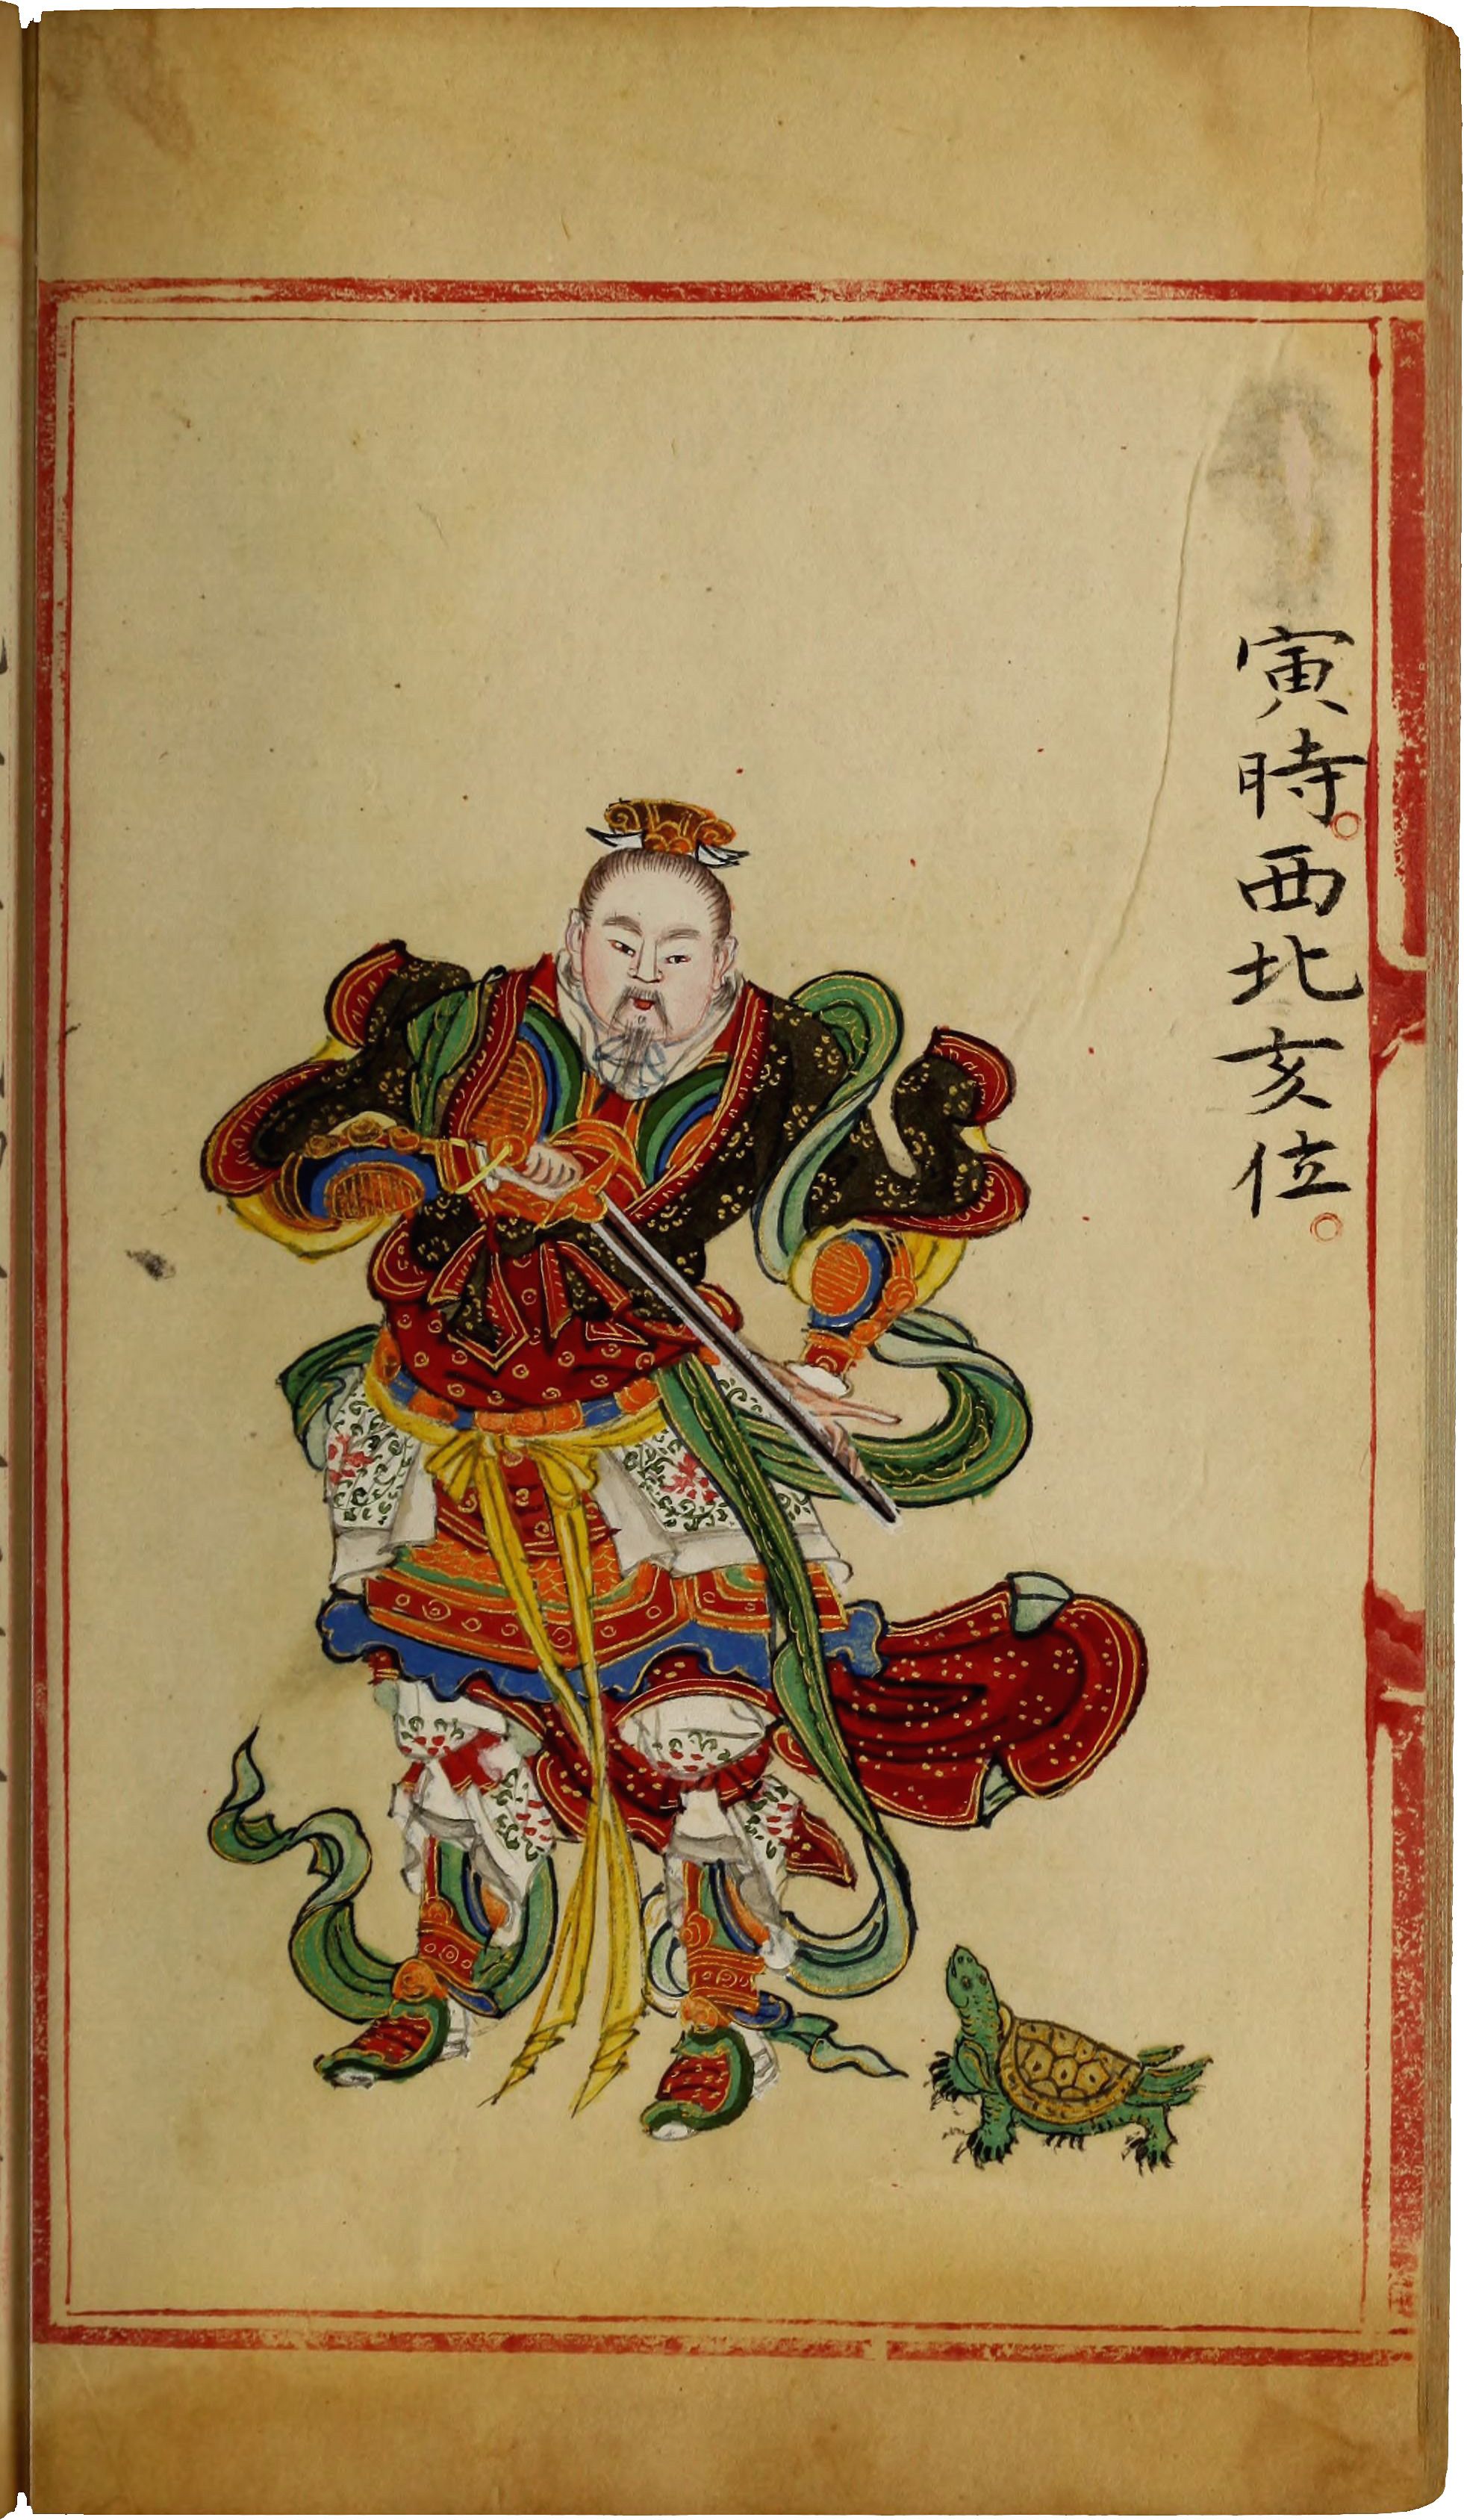 寅時。西北亥位。